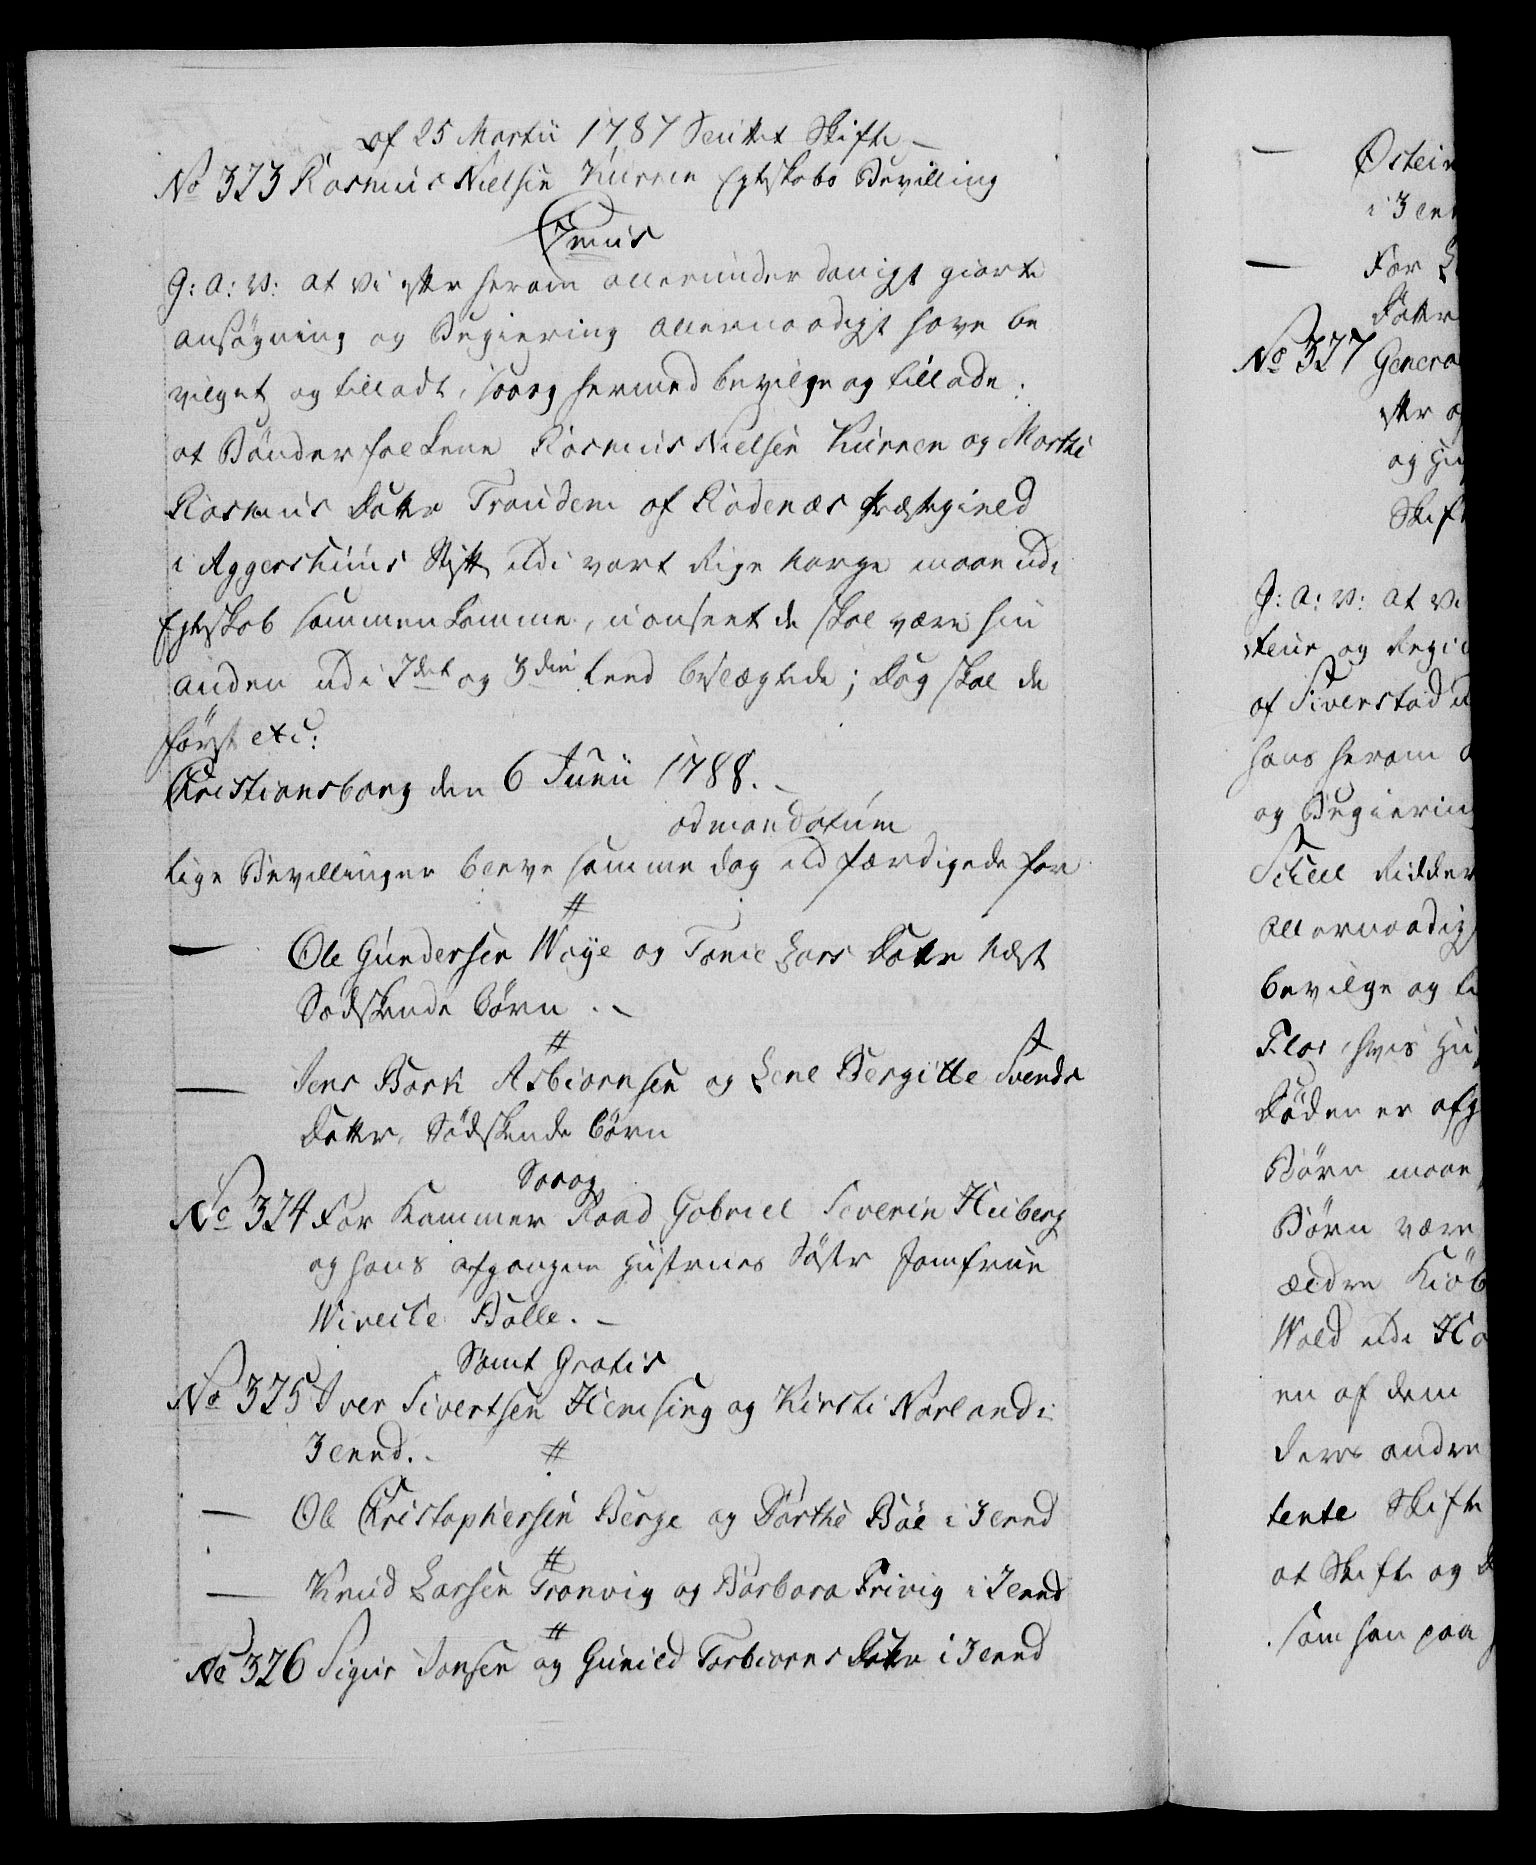 af 25 Martii 1787 Sluttet Skifte —
No 323 Rasmus Nielsen Kürren Egteskabs Bevilling
Omis
G: A: V: at Vi efter herom allerunderdanigst giorte
ansøgning og Begiering Allernaadigst have be
vilget og tilladt, saa og hermed bevilge og tillade:
at Bønderfolkene Rasmus Nielsen Kürren og Marthe
Rasmus Datter Trandem af Rødenæs Præstegield
i Aggershuus Stift udi vort Rige Norge maae udi
Egteskab sammenkomme, uanseet de skal være hin
anden udi 2det og 3die Leed beslægtede; Dog skal de
først etc:
Christiansborg den 6 Junii 1788. —
ad mandatum
lige Bevillinger bleve samme dag udfærdigede for
#
— Ole Gundersen Woye og Tone Lars Datter Næst
Sødskende børn. —
#
— Jens Bork Asbiørnsen og Lene Bergitte Svends
Datter, Sødskende børn
Saa og
No 324 For Kammer Raad Gabriel Severin Heiberg
og hans afgangne Hustrues Søster Jomfrue
Wivecke Balle. —
Samt Gratis
No 325 Iver Sivertsen Hemsing og Kirsti Narland i
3 Leed. —
#
— Ole Christophersen Berge og Dorthe Bøe i 3 Leed
#
— Knud Larsen Tronvig og Barbara Frivig i 2 Leed
#
No 326 Sigur Jonsen og Gunild Torbiørns Datter i 3 Leed
— Østein
i 3 Lee
— For
Datter
No 327 Genera
efter
og Hu
Skif
G: A: V: at Vi
og Begie
af Siverstad
hans herom
og Begiering
Scheel Ridder
Allernaadigst
bevilge og ti
Flor, hvis Hu
Døden er afg
Børn maae
Børn være
ældre Kiøb
Wold udi Ha
en af dem
deres andre
tente Skifte
at Skifte og
som han paa